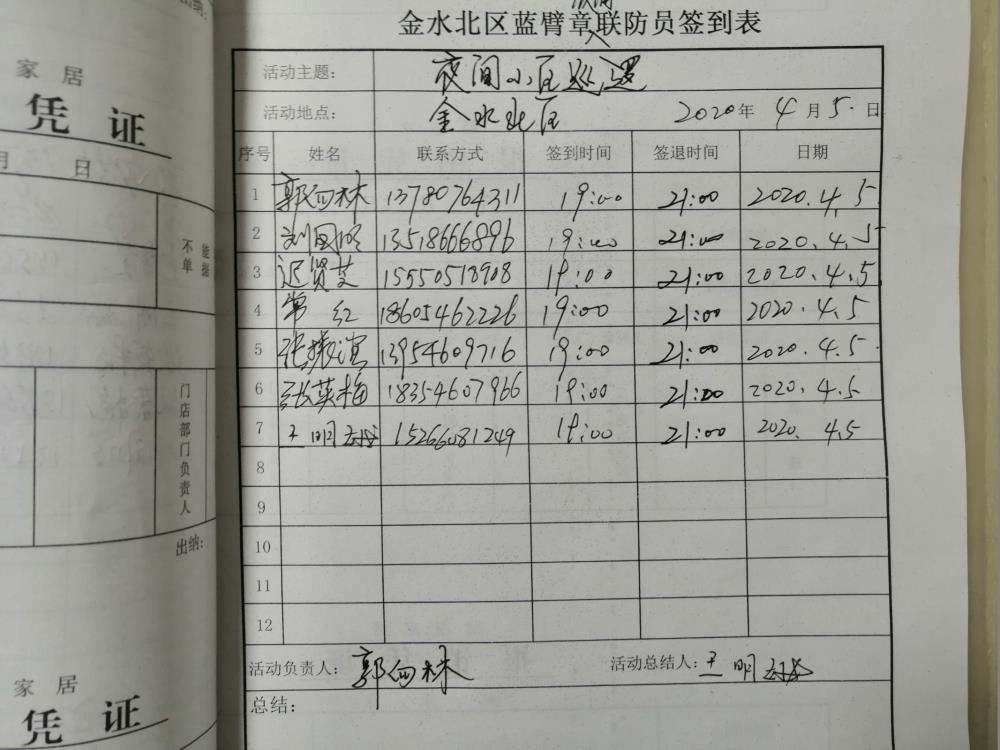 出纳:
家居
凭证
月 日
不单
能据
门店部门负责人
出纳:
家居
凭证
金水北区蓝臂章联防员签到表
活动主题: 夜间小区巡逻
活动地点: 金水北区 2020年4月5日
序号 姓名 联系方式 签到时间 签退时间 日期
1 郭向林 13780764311 19:00 21:00 2020.4.5
2 刘国顺 13518666896 19:00 21:00 2020.4.5
3 迟贤芝 15550518908 19:00 21:00 2020.4.5
4 常红 18605462226 19:00 21:00 2020.4.5
5 张振滨 13954609716 19:00 21:00 2020.4.5
6 张英梅 18354607966 19:00 21:00 2020.4.5
7 王明 15266081249 19:00 21:00 2020.4.5
8
9
10
11
12
活动负责人: 郭向林 活动总结人: 王明
总结: